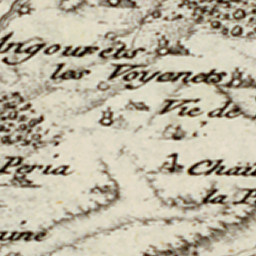 Angourets
les Voyenets
Vic de
Peria
Chau
la P
uine